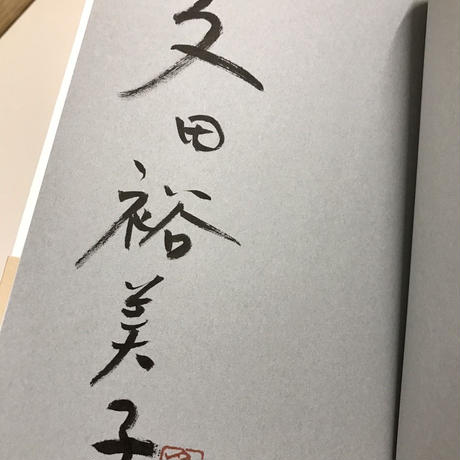 久田裕美子